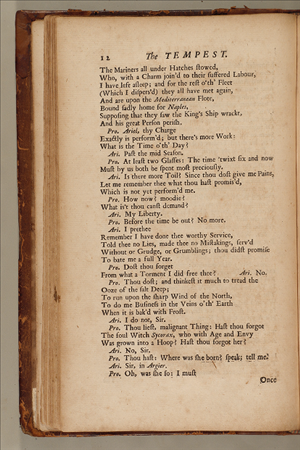 12 The TEMPEST.
The Mariners all under Hatches ſtowed,
Who, with a Charm join'd to their ſuffered Labour,
I have left aſleep; and for the reſt o'th' Fleet
(Which I diſpers'd) they all have met again,
And are upon the Mediterranean Flote,
Bound ſadly home for Naples,
Suppoſing that they ſaw the King's Ship wrackt,
And his great Perſon periſh.
Pro. Ariel, thy Charge
Exactly is perform'd; but there's more Work:
What is the Time o'th' Day?
Ari. Paſt the mid Seaſon,
Pro. At leaſt two Glaſſes: The time 'twixt ſix and now
Muſt by us both be ſpent moſt preciouſly.
Ari. Is there more Toil? Since thou doſt give me Pains,
Let me remember thee what thou haſt promis'd,
Which is not yet perform'd me.
Pro. How now? moodie?
What is't thou canſt demand?
Ari. My Liberty.
Pro. Before the time be out? No more.
Ari. I prethee
Remember I have done thee worthy Service,
Told thee no Lies, made thee no Miſtakings, ſerv'd
Without or Grudge, or Grumblings; thou didſt promiſe
To bate me a full Year.
Pro. Doſt thou forget
From what a Torment I did free thee? Ari. No.
Pro. Thou doſt; and thinkeſt it much to tread the
Ooze of the ſalt Deep;
To run upon the ſharp Wind of the North,
To do me Buſineſs in the Veins o'th' Earth
When it is bak'd with Froſt.
Ari. I do not, Sir.
Pro. Thou lieſt, malignant Thing: Haſt thou forgot
The foul Witch Sycorax, who with Age and Envy
Was grown into a Hoop? Haſt thou forgot her?
Ari. No, Sir.
Pro. Thou haſt: Where was ſhe born? ſpeak; tell me.
Ari. Sir, in Argier.
Pro. Oh, was ſhe ſo: I muſt
Once